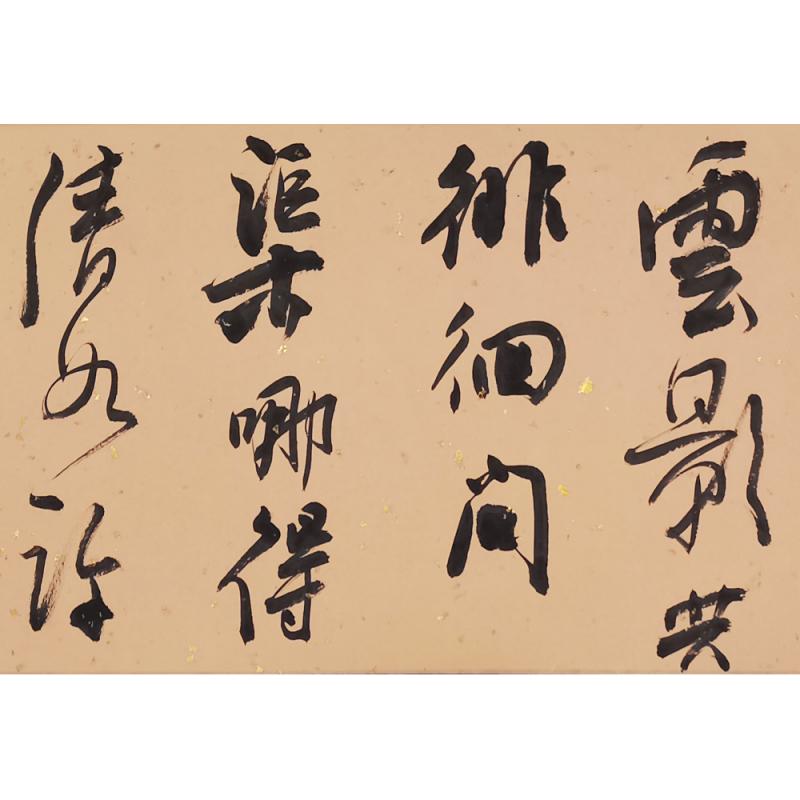 雲影共
徘徊問
渠哪得
清如許